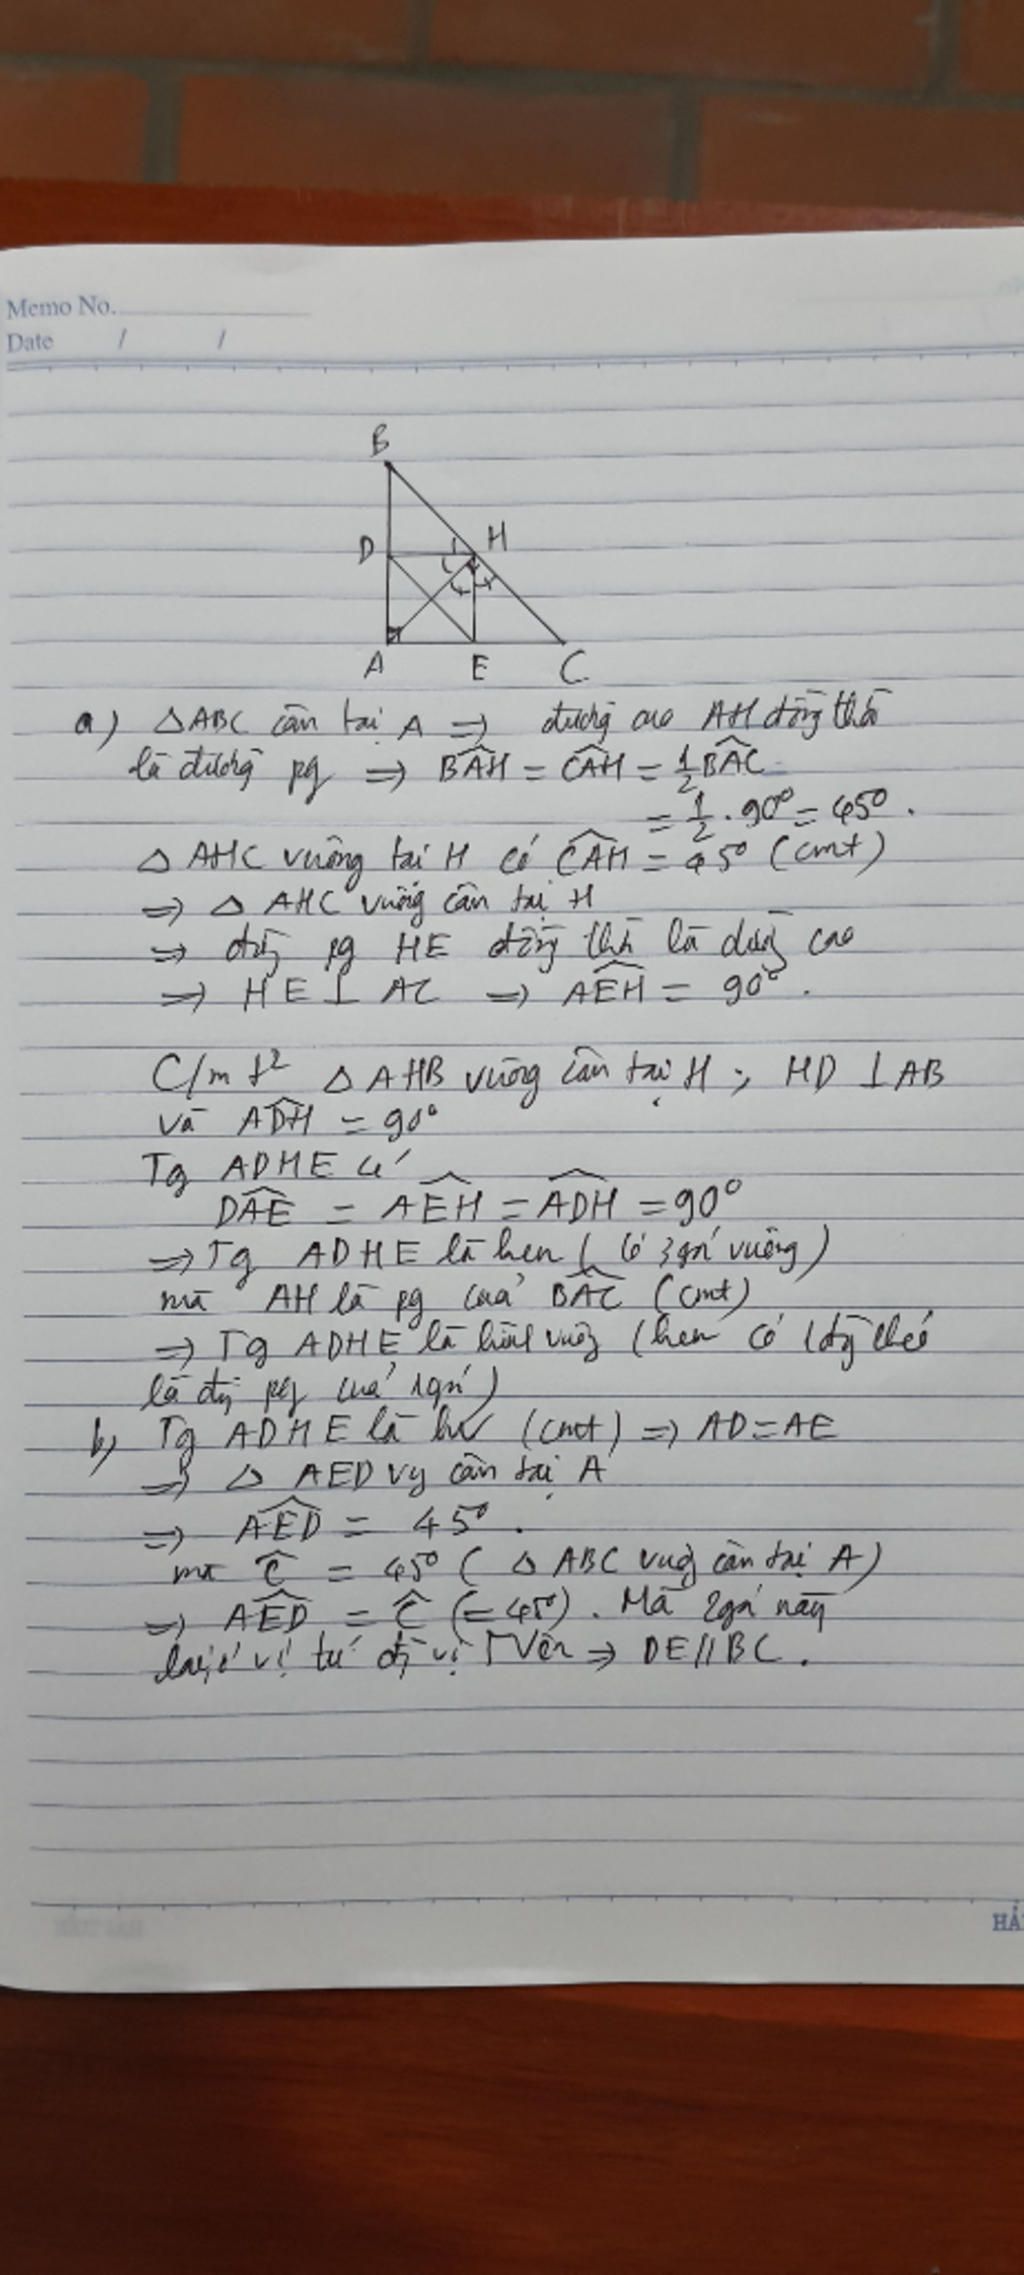 Memo No.
Date / /
B
D H
A E C
a) △ABC cân tại A ⇒ đường cao AH đồng thời
là đường pg ⇒ BAĤ = CAĤ = 1/2 BAĈ
= 1/2 . 90° = 45° .
△ AHC vuông tại H có CAĤ = 45° (cmt)
⇒ △ AHC vuông cân tại H
⇒ đg pg HE đồng thời là đường cao
⇒ HE ⊥ AC ⇒ AEĤ = 90° .
C/m t² △ AHB vuông cân tại H ; HD ⊥ AB
và ADĤ = 90°
Tg ADHE có
DAÊ = AEĤ = ADĤ = 90°
⇒ Tg ADHE là hcn ( có 3 góc vuông )
mà AH là pg của BAĈ (cmt)
⇒ Tg ADHE là hình vuông (hcn có 1 đg chéo
là đg pg của 1 góc)
b) Tg ADHE là hv (cmt) ⇒ AD = AE
⇒ △ AED vg cân tại A
⇒ AED̂ = 45° .
mà Ĉ = 45° ( △ ABC vuông cân tại A)
⇒ AED̂ = Ĉ (= 45°) . Mà 2 góc này
lại ở vị trí đg vị nên ⇒ DE // BC .